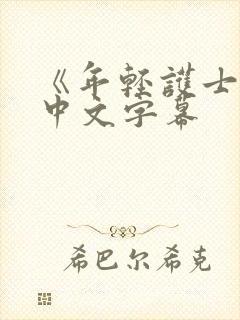 《年轻護士
中文字幕
希巴尔希克